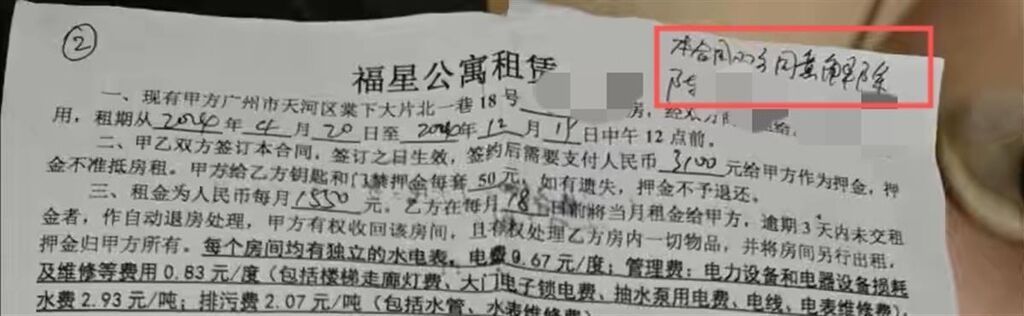 ②
本合同双方同意解除
福星公寓租赁
一、现有甲方广州市天河区棠下大片北一巷18号 房,
用,租期从2024年4月20日至2024年12月19日中午12点前。
二、甲乙双方签订本合同,签订之日生效,签约后需要支付人民币3100元给甲方作为押金,押
金不准抵房租。甲方给乙方钥匙和门禁押金每套50元,如有遗失,押金不予退还。
三、租金为人民币每月1550元,乙方在每月18日前将当月租金给甲方,逾期3天内未交租
金者,作自动退房处理,甲方有权收回该房间,且有权处理乙方房内一切物品,并将房间另行出租,
押金归甲方所有。每个房间均有独立的水电表,电费0.67元/度;管理费:电力设备和电器设备损耗
及维修等费用0.83元/度(包括楼梯走廊灯费、大门电子锁电费、抽水泵用电费、电线、电表维修费),
水费2.93元/吨;排污费2.07元/吨(包括水管、水表维修费)